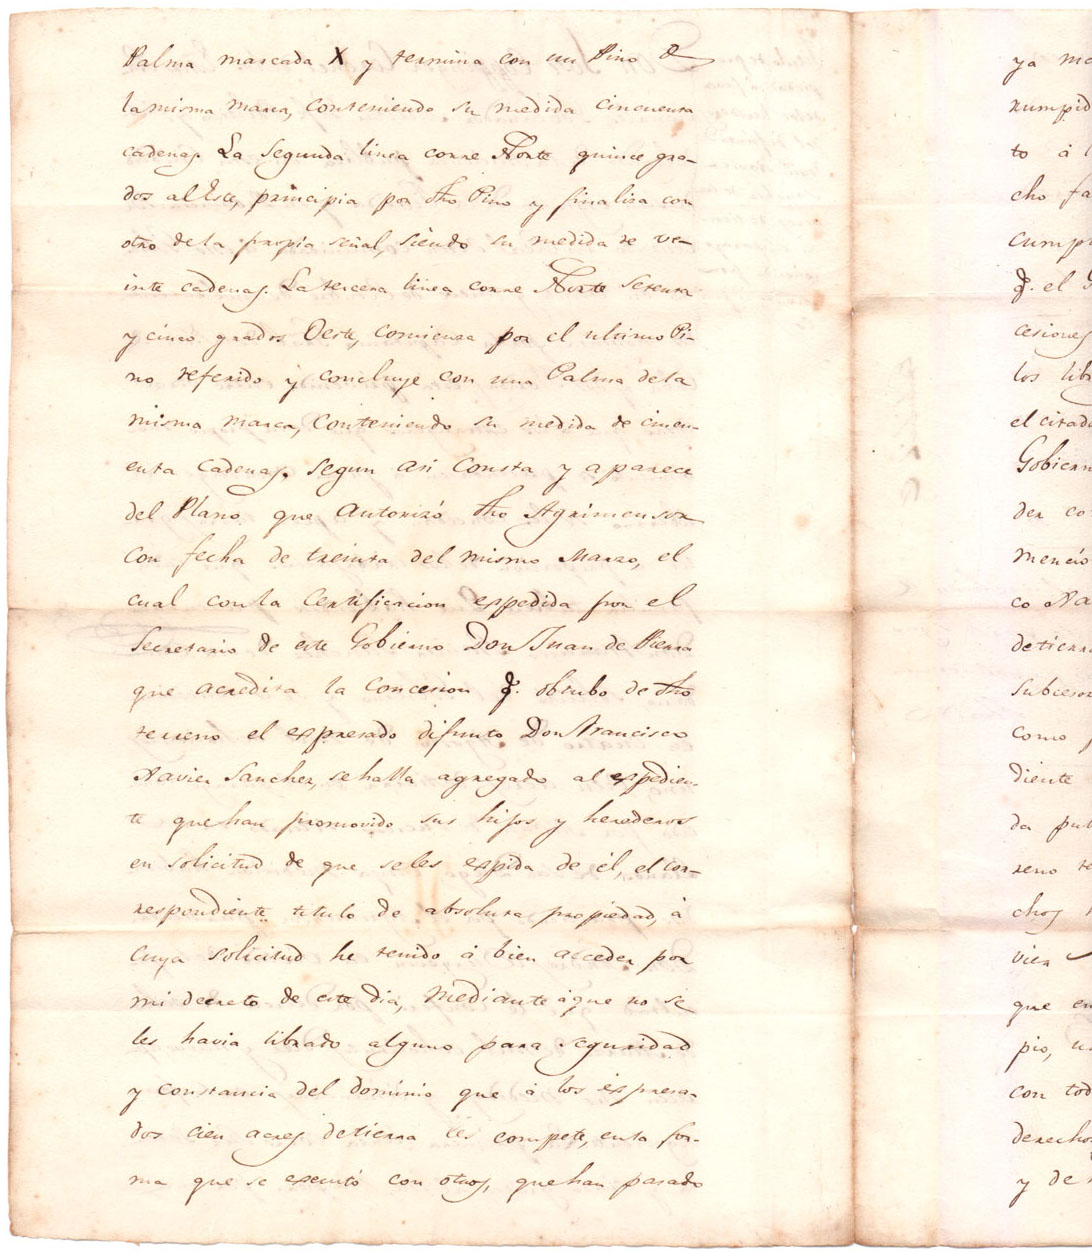 Palma marcada X y termina con un Pino de
la misma marca, conteniendo su medida cincuenta
cadenas. La segunda linea corre Norte quince gra-
dos al Este, principia por dho Pino y finaliza con
otro de la propia señal, siendo su medida de ve-
inte cadenas. La tercera linea corre Norte setenta
y cinco grados Oeste, comienza por el ultimo Pi-
no referido y concluye con una Palma de la
misma marca, conteniendo su medida de cincu-
enta Cadenas. Segun asi Consta y aparece
del Plano que Autorizó dho Agrimensor
con fecha de treinta del mismo Marzo, el
cual con la Certificacion expedida por el
Secretario de este Gobierno Don Juan de Pierra
que acredita la Concesion q. obtubo de dho
terreno el expresado difunto Don Francisco
Xavier Sanchez, se halla agregado al expedien-
te que han promovido sus hijos y herederos
en solicitud de que se les expida de él, el cor-
respondiente titulo de absoluta propiedad, á
cuya solicitud he tenido á bien acceder por
mi decreto de este dia, mediante á que no se
les havia librado alguno para seguridad
y constancia del dominio que á los expresa-
dos cien acres de tierra les compete, en la for-
ma que se executó con otros, que han pasado
ya me
rumpid
to á l
cho fa
cump
q. el
cesiones
los lib
el citado
Gobiern
der co
mencio
co Xa
de tierra
subcesor
como
diente
da pu
reno te
chos
vier
que en
pio, u
con tod
derecho
y de